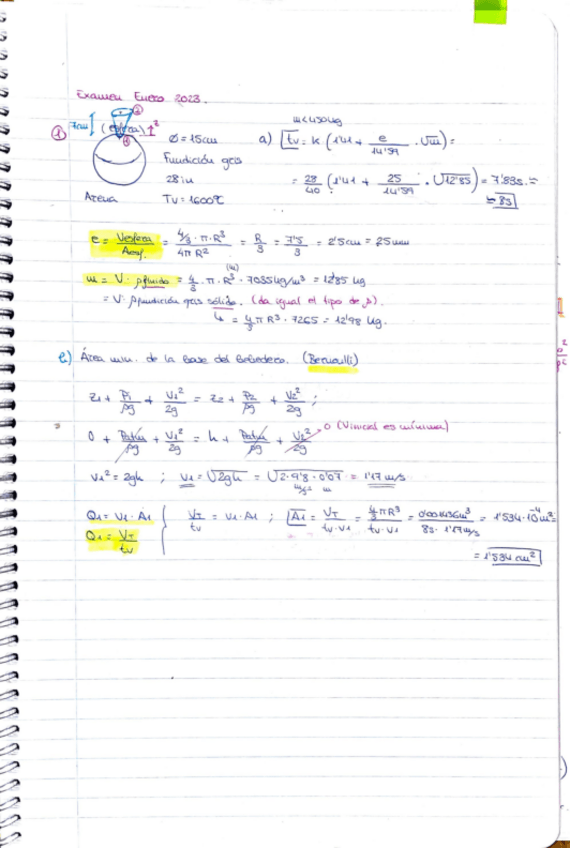 Examen Enero 2023.
① 7cm (esfera) 1 2
Ø = 15cm
Fundición gris
28 in
Arena Tv = 1600ºC
m < 450kg
a) tv = k (1'41 + e/14'59 · √m) =
= 28/40 (1'41 + 25/14'59 · √12'85) = 7'83s. ≈
≈ 8s
e = Vesfera/Aesf. = 4/3 · π · R³/4πR² = R/3 = 7'5/3 = 2'5cm = 25mm
m = V · ρfluido = 4/3 · π · R³ (m) · 7055kg/m³ = 12'85 kg
= V · ρfundición gris sólido. (da igual el tipo de ρ).
↳ = 4/3 π R³ · 7265 = 12'98 kg.
b) Área min. de la base del bebedero. (Bernoulli)
z1 + P1/ρg + V1²/2g = z2 + P2/ρg + V2²/2g ;
0 + Patm/ρg + V1²/2g = h + Patm/ρg + V2²/2g → 0 (Vinicial es mínima)
V1² = 2gh ; V1 = √2gh = √2·9'8·0'07 = 1'17 m/s
m/s² m
Q1 = V1 · A1
Q1 = VT/tv
VT/tv = V1 · A1 ; A1 = VT/tv·V1 = 4/3 πR³/tv·V1 = 0'001436m³/8s·1'17m/s = 1'534·10⁻⁴m² =
= 1'534 cm²